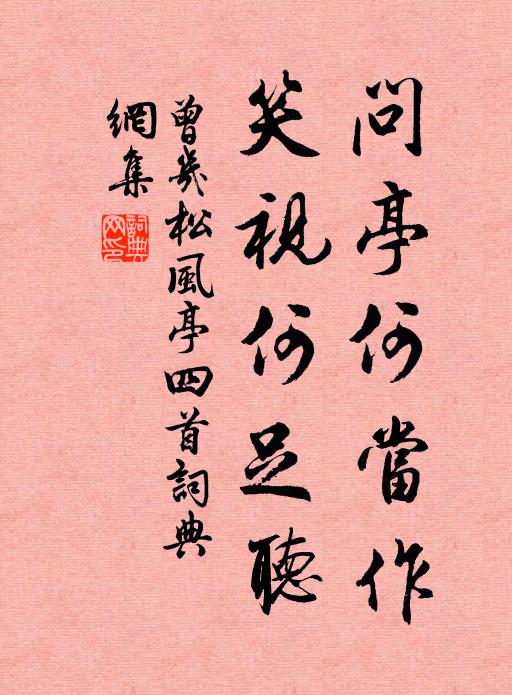 問亭何當作
笑視何足聽
曾幾松風亭四首詞典
網集
詞典網印